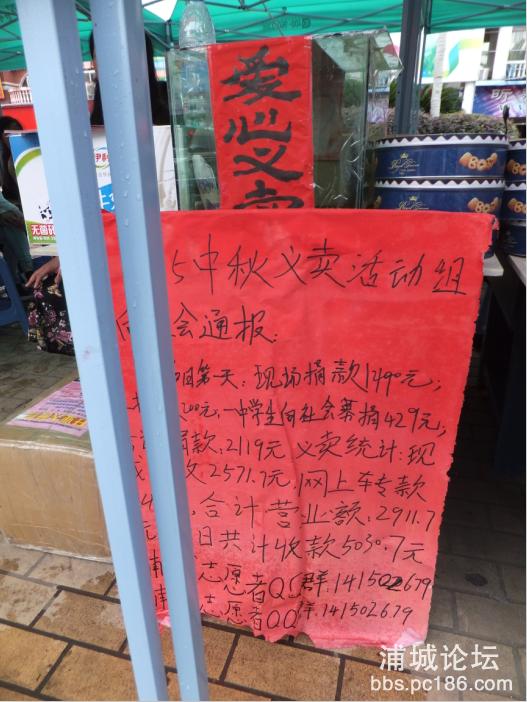 爱心义卖
5中秋义卖活动组
向 会通报：
日第一天：现场捐款1490元；
200元，一中学生向社会募捐429元；
捐款：2119元 义卖统计：现
收2571.7元，网上车专款
4 合计营业额：2911.7
元 日共计收款5030.7元
南 志愿者QQ群：141502679
志愿者QQ群：141502679
无菌砖
浦城论坛
bbs.pc186.com